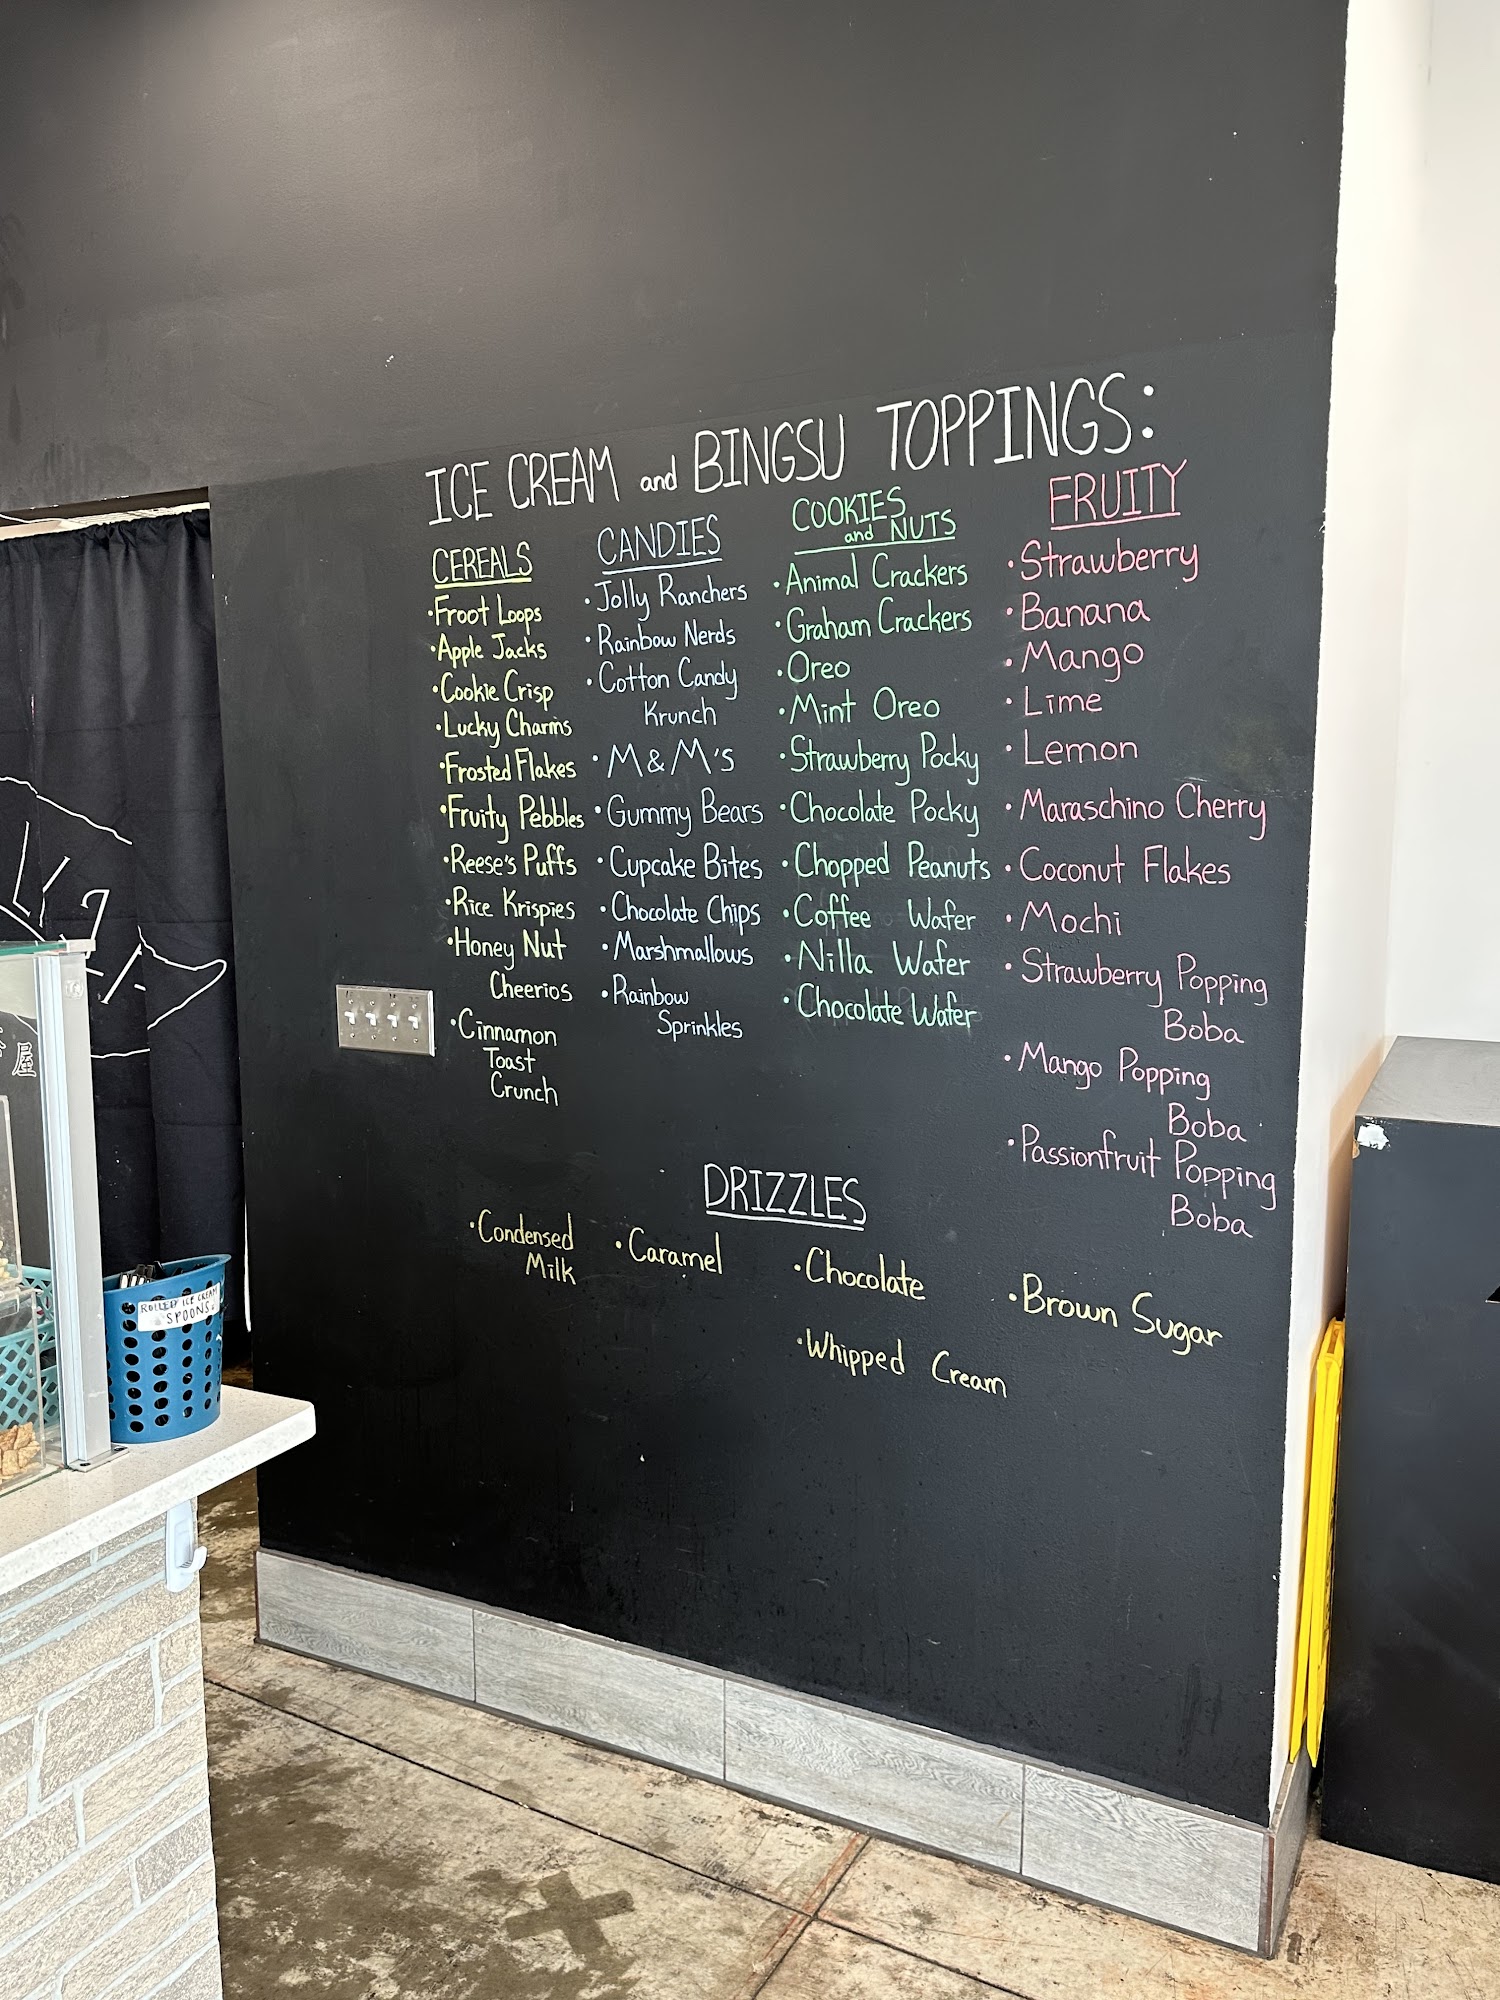 ICE CREAM and BINGSU TOPPINGS:
CEREALS
•Froot Loops
•Apple Jacks
•Cookie Crisp
•Lucky Charms
•Frosted Flakes
•Fruity Pebbles
•Reese's Puffs
•Rice Krispies
•Honey Nut
Cheerios
•Cinnamon
Toast
Crunch
CANDIES
•Jolly Ranchers
•Rainbow Nerds
•Cotton Candy
Krunch
•M&M's
•Gummy Bears
•Cupcake Bites
•Chocolate Chips
•Marshmallows
•Rainbow
Sprinkles
COOKIES
and NUTS
•Animal Crackers
•Graham Crackers
•Oreo
•Mint Oreo
•Strawberry Pocky
•Chocolate Pocky
•Chopped Peanuts
•Coffee Wafer
•Nilla Wafer
•Chocolate Wafer
FRUITY
•Strawberry
•Banana
•Mango
•Lime
•Lemon
•Maraschino Cherry
•Coconut Flakes
•Mochi
•Strawberry Popping
Boba
•Mango Popping
Boba
•Passionfruit Popping
Boba
DRIZZLES
•Condensed
Milk
•Caramel
•Chocolate
•Brown Sugar
•Whipped Cream
ROLLED ICE CREAM
SPOONS